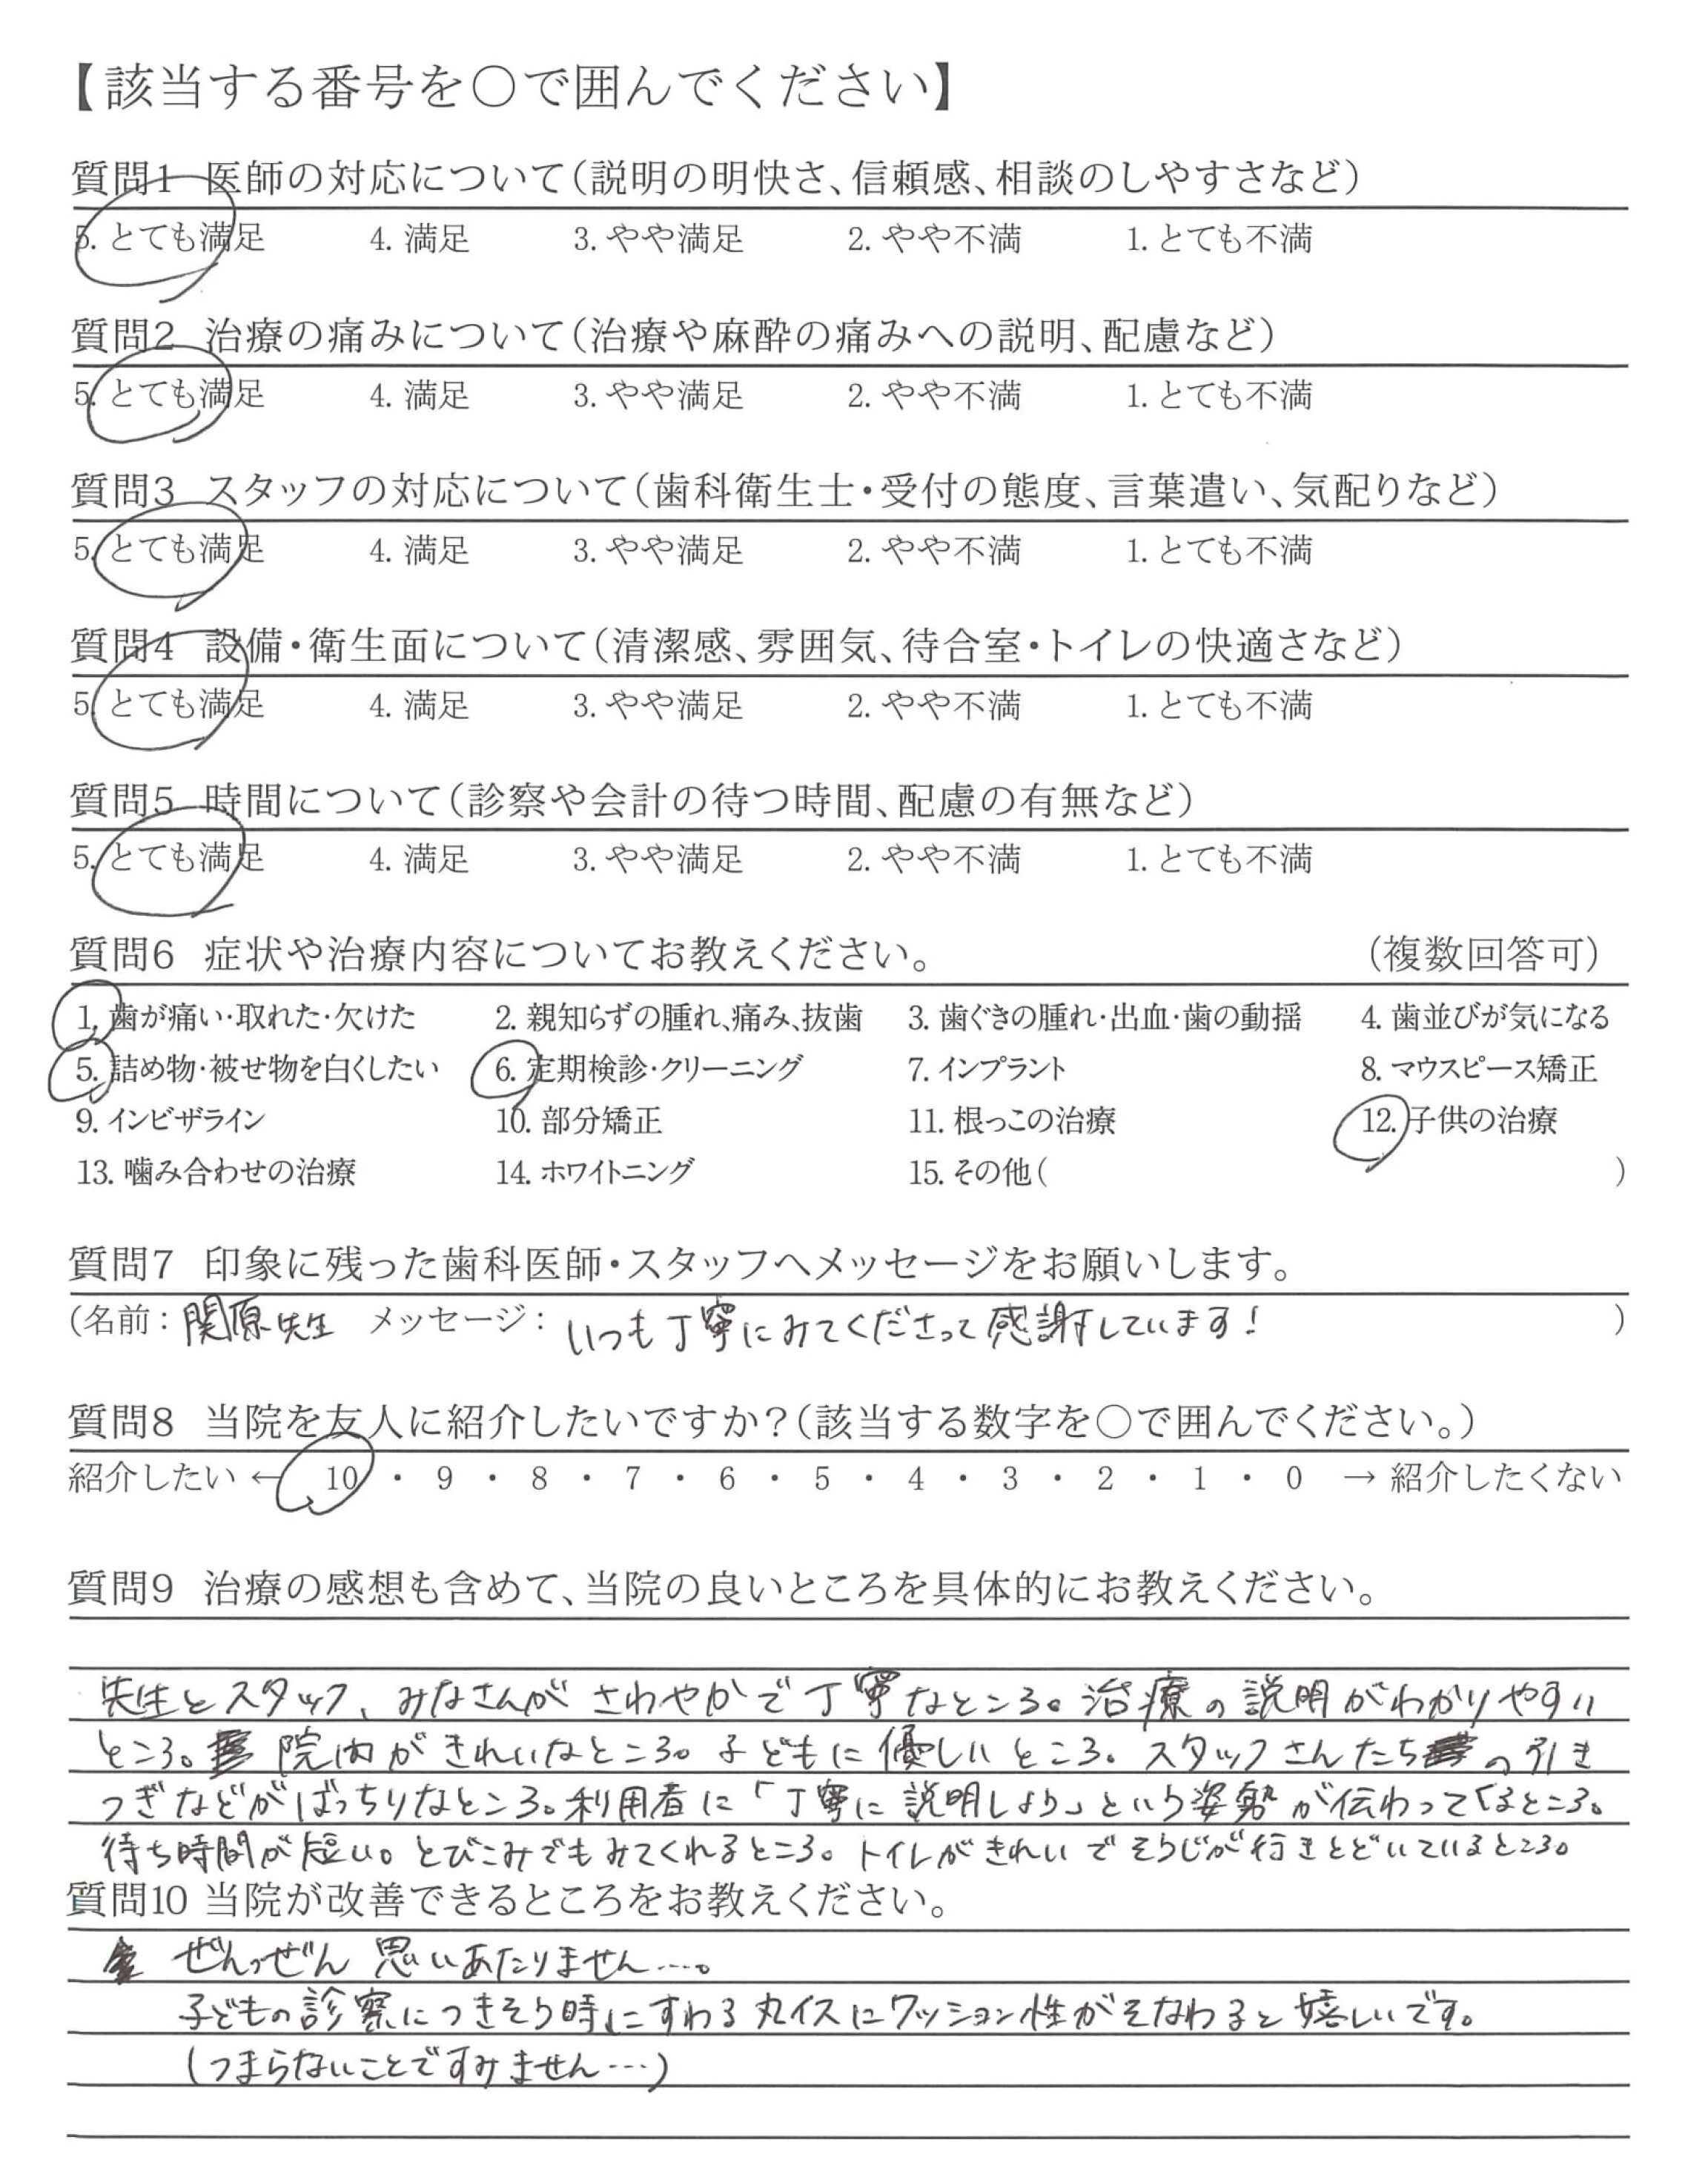 【該当する番号を○で囲んでください】
質問1 医師の対応について(説明の明快さ、信頼感、相談のしやすさなど)
5. とても満足 4. 満足 3. やや満足 2. やや不満 1. とても不満
質問2 治療の痛みについて(治療や麻酔の痛みへの説明、配慮など)
5. とても満足 4. 満足 3. やや満足 2. やや不満 1. とても不満
質問3 スタッフの対応について(歯科衛生士・受付の態度、言葉遣い、気配りなど)
5. とても満足 4. 満足 3. やや満足 2. やや不満 1. とても不満
質問4 設備・衛生面について(清潔感、雰囲気、待合室・トイレの快適さなど)
5. とても満足 4. 満足 3. やや満足 2. やや不満 1. とても不満
質問5 時間について(診察や会計の待つ時間、配慮の有無など)
5. とても満足 4. 満足 3. やや満足 2. やや不満 1. とても不満
質問6 症状や治療内容についてお教えください。 (複数回答可)
1. 歯が痛い・取れた・欠けた 2. 親知らずの腫れ、痛み、抜歯 3. 歯ぐきの腫れ・出血・歯の動揺 4. 歯並びが気になる
5. 詰め物・被せ物を白くしたい 6. 定期検診・クリーニング 7. インプラント 8. マウスピース矯正
9. インビザライン 10. 部分矯正 11. 根っこの治療 12. 子供の治療
13. 噛み合わせの治療 14. ホワイトニング 15. その他( )
質問7 印象に残った歯科医師・スタッフへメッセージをお願いします。
(名前: 関原先生 メッセージ: いつも丁寧にみてくださって感謝しています! )
質問8 当院を友人に紹介したいですか?(該当する数字を○で囲んでください。)
紹介したい ← 10 ・ 9 ・ 8 ・ 7 ・ 6 ・ 5 ・ 4 ・ 3 ・ 2 ・ 1 ・ 0 → 紹介したくない
質問9 治療の感想も含めて、当院の良いところを具体的にお教えください。
先生とスタッフ、みなさんがさわやかで丁寧なところ。治療の説明がわかりやすい
ところ。院内がきれいなところ。子どもに優しいところ。スタッフさんたちの引き
つぎなどがばっちりなところ。利用者に「丁寧に説明しよう」という姿勢が伝わってくるところ。
待ち時間が短い。とびこみでもみてくれるところ。トイレがきれいでそうじが行きとどいているところ。
質問10 当院が改善できるところをお教えください。
ぜんっぜん 思いあたりません…。
子どもの診察につきそう時にすわる丸イスにクッション性がそなわると嬉しいです。
(つまらないことですみません…)